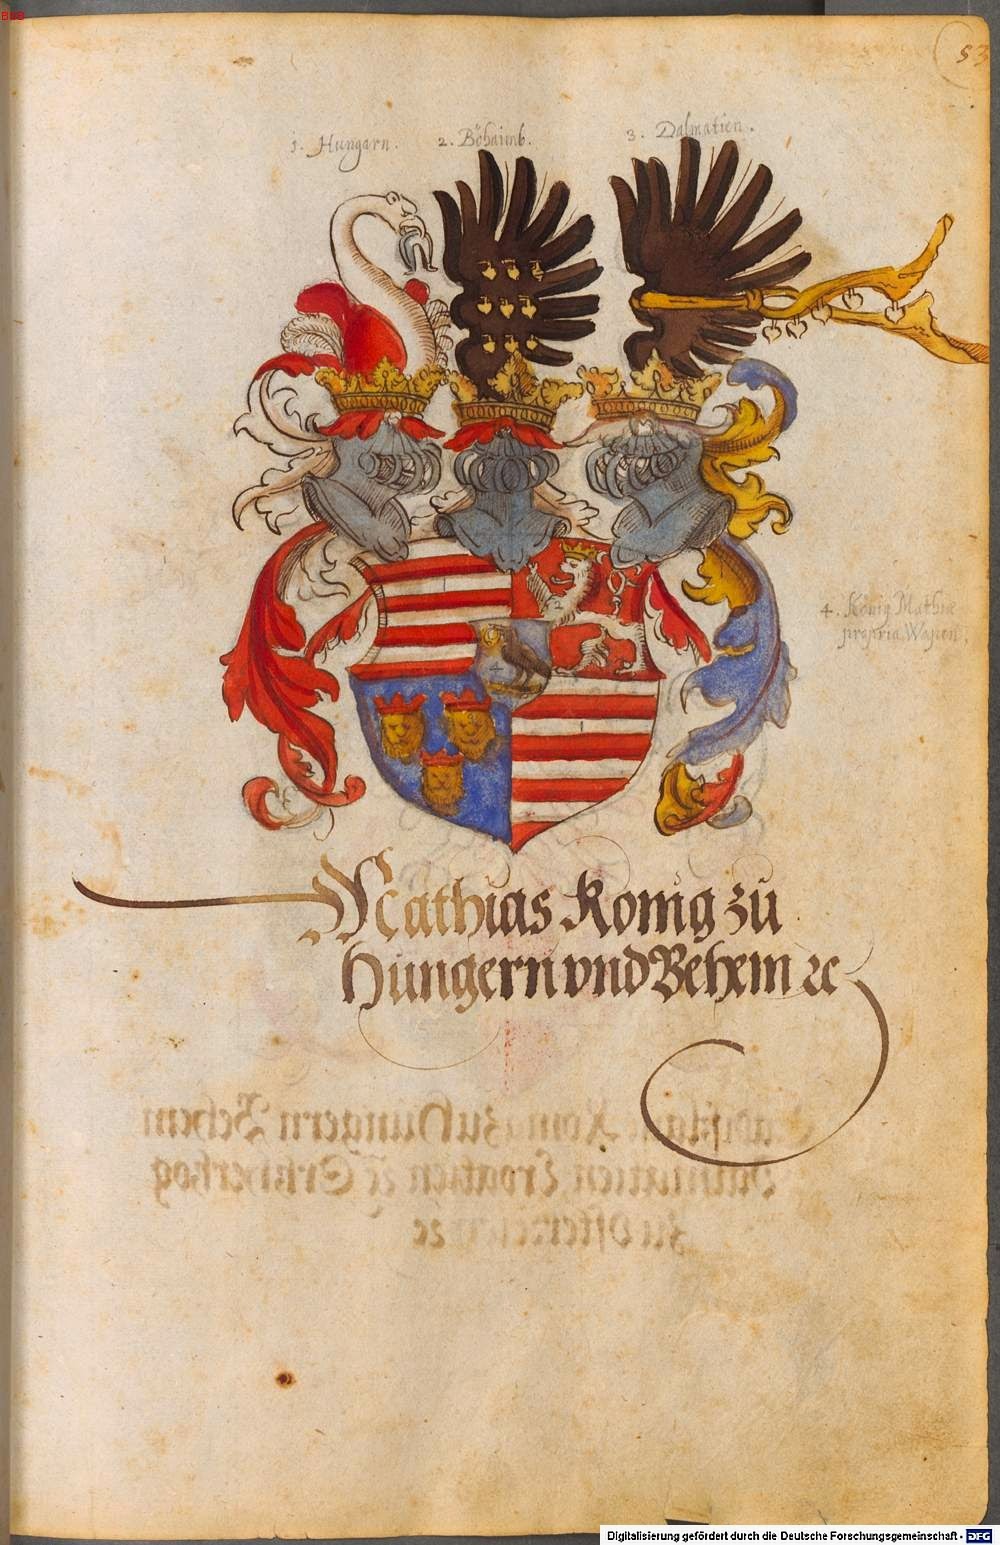 BSB
53
1. Hungarn. 2. Böhaimb. 3. Dalmatien.
4. König Mathiæ
propria Wapen.
2
4
1
Mathias Konig zu
Hungern vnd Behem ꝛc
Digitalisierung gefördert durch die Deutsche Forschungsgemeinschaft - DFG